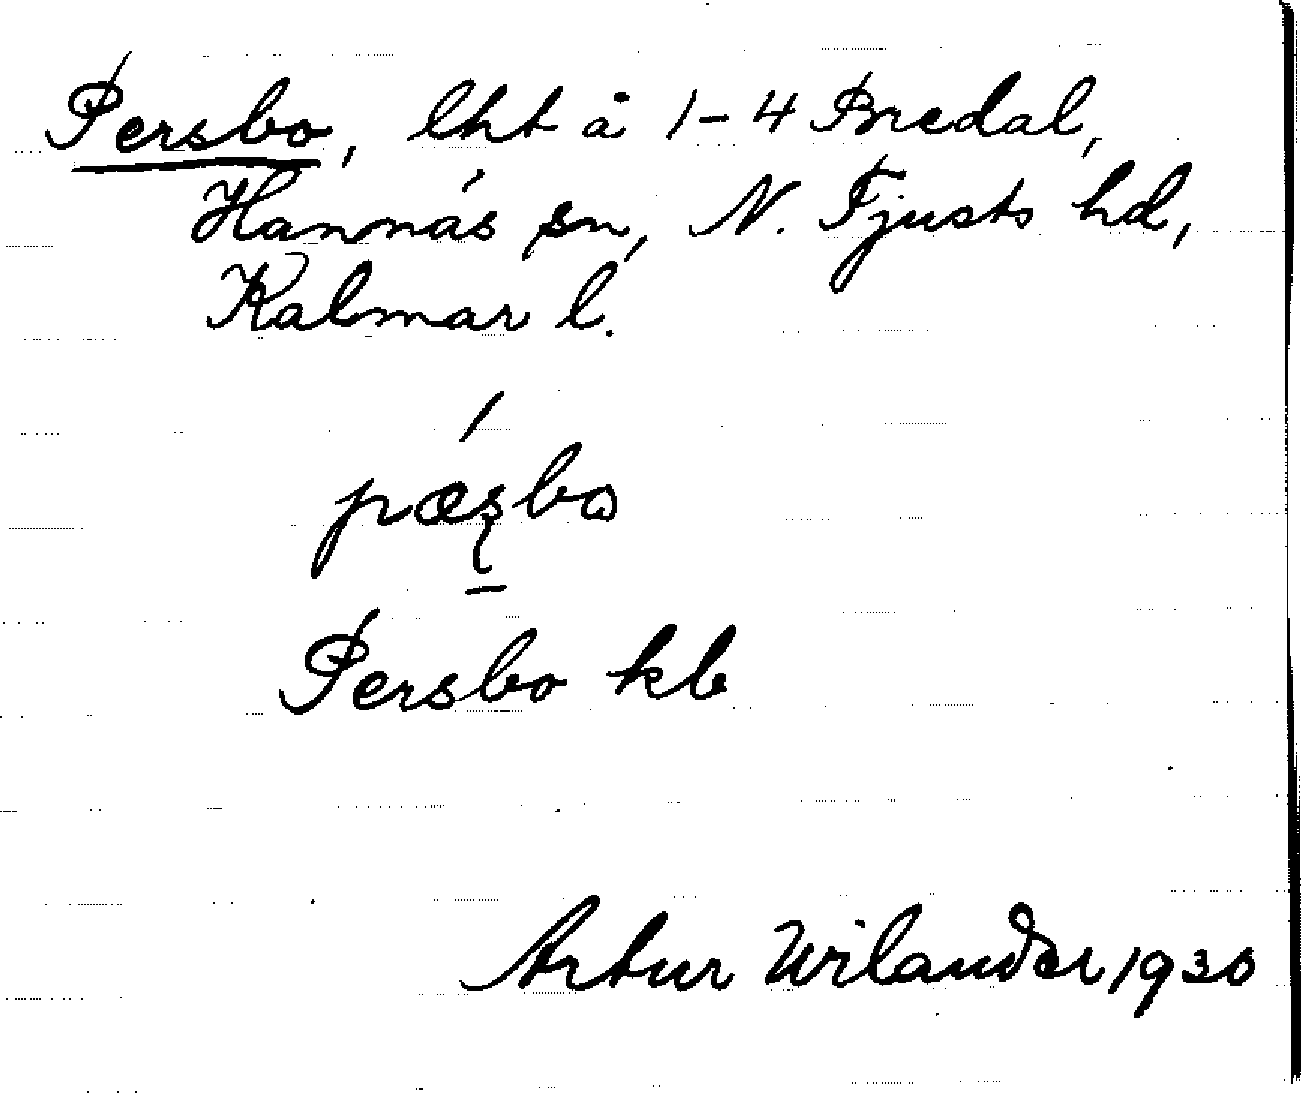 Persbo, lht å 1-4 Bredal,
Hannäs sn, N. Tjusts hd,
Kalmar l.
pæʂbo
Persbo kb
Artur Wilander 1930